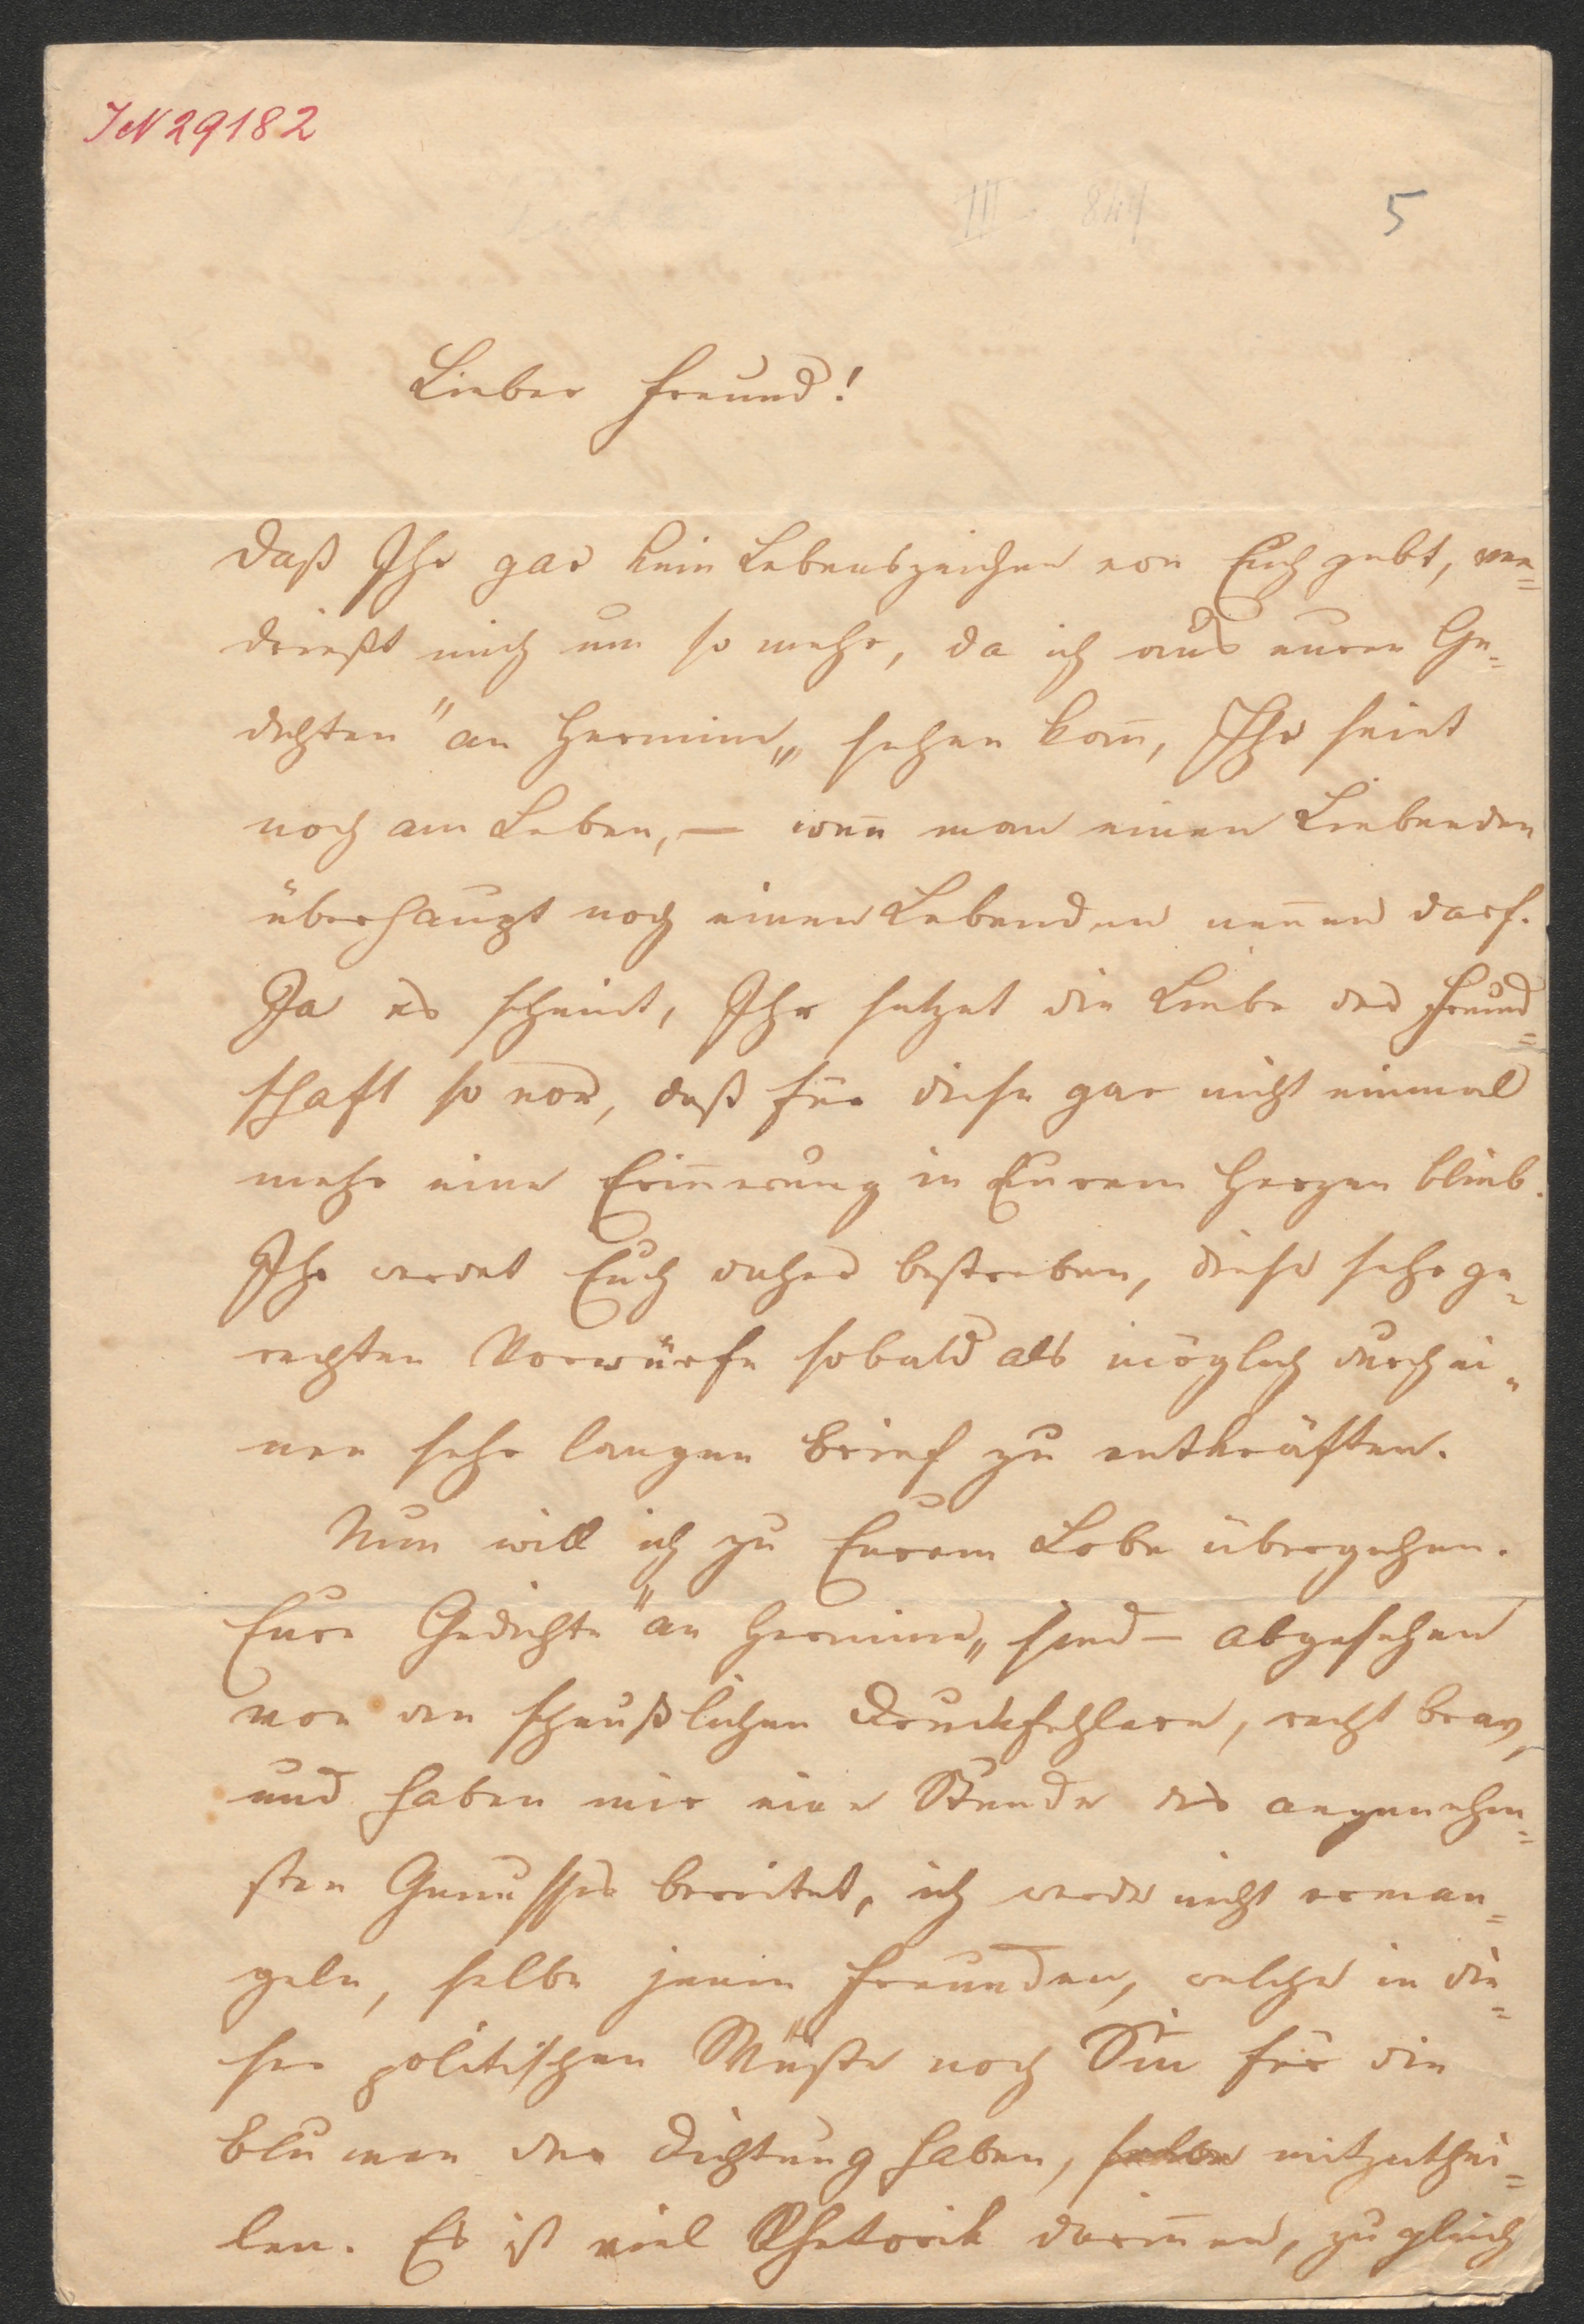 JN 29182
III 844
5
Lieber Freund!
Daß Ihr gar kein Lebenszeichen von Euch gebt, ver=
drießt mich um so mehr, da ich aus euren Ge=
dichten "an Hermine„ sehen kan̄, Ihr seiet
noch am Leben, — wen̄ man einen Liebenden
überhaupt noch einen Lebenden nen̄en darf.
Ja es scheint, Ihr setzet die Liebe der Freund=
schaft so vor, daß für diese gar nicht einmal
mehr eine Erin̄erung in Eurem Herzen blieb.
Ihr werdet Euch daher bestreben, diese sehr ge=
rechten Vorwürfe sobald als möglich durch ei=
nen sehr langen Brief zu entkräften.
Nun will ich zu Eurem Lobe übergehen.
Eure Gedichte "an Hermine„ sind — abgesehen
von den scheußlichen Druckfehlern, recht brav,
und haben mir eine Stunde des angenehm=
sten Genusses bereitet, ich werde nicht erman=
geln, selbe jenen Freunden, welche in die=
ser politischen Wüste noch Sin̄ für die
Blumen der Dichtung haben, selbe mitzuthei=
len. Es ist viel Rhetorik darin̄en, zugleich